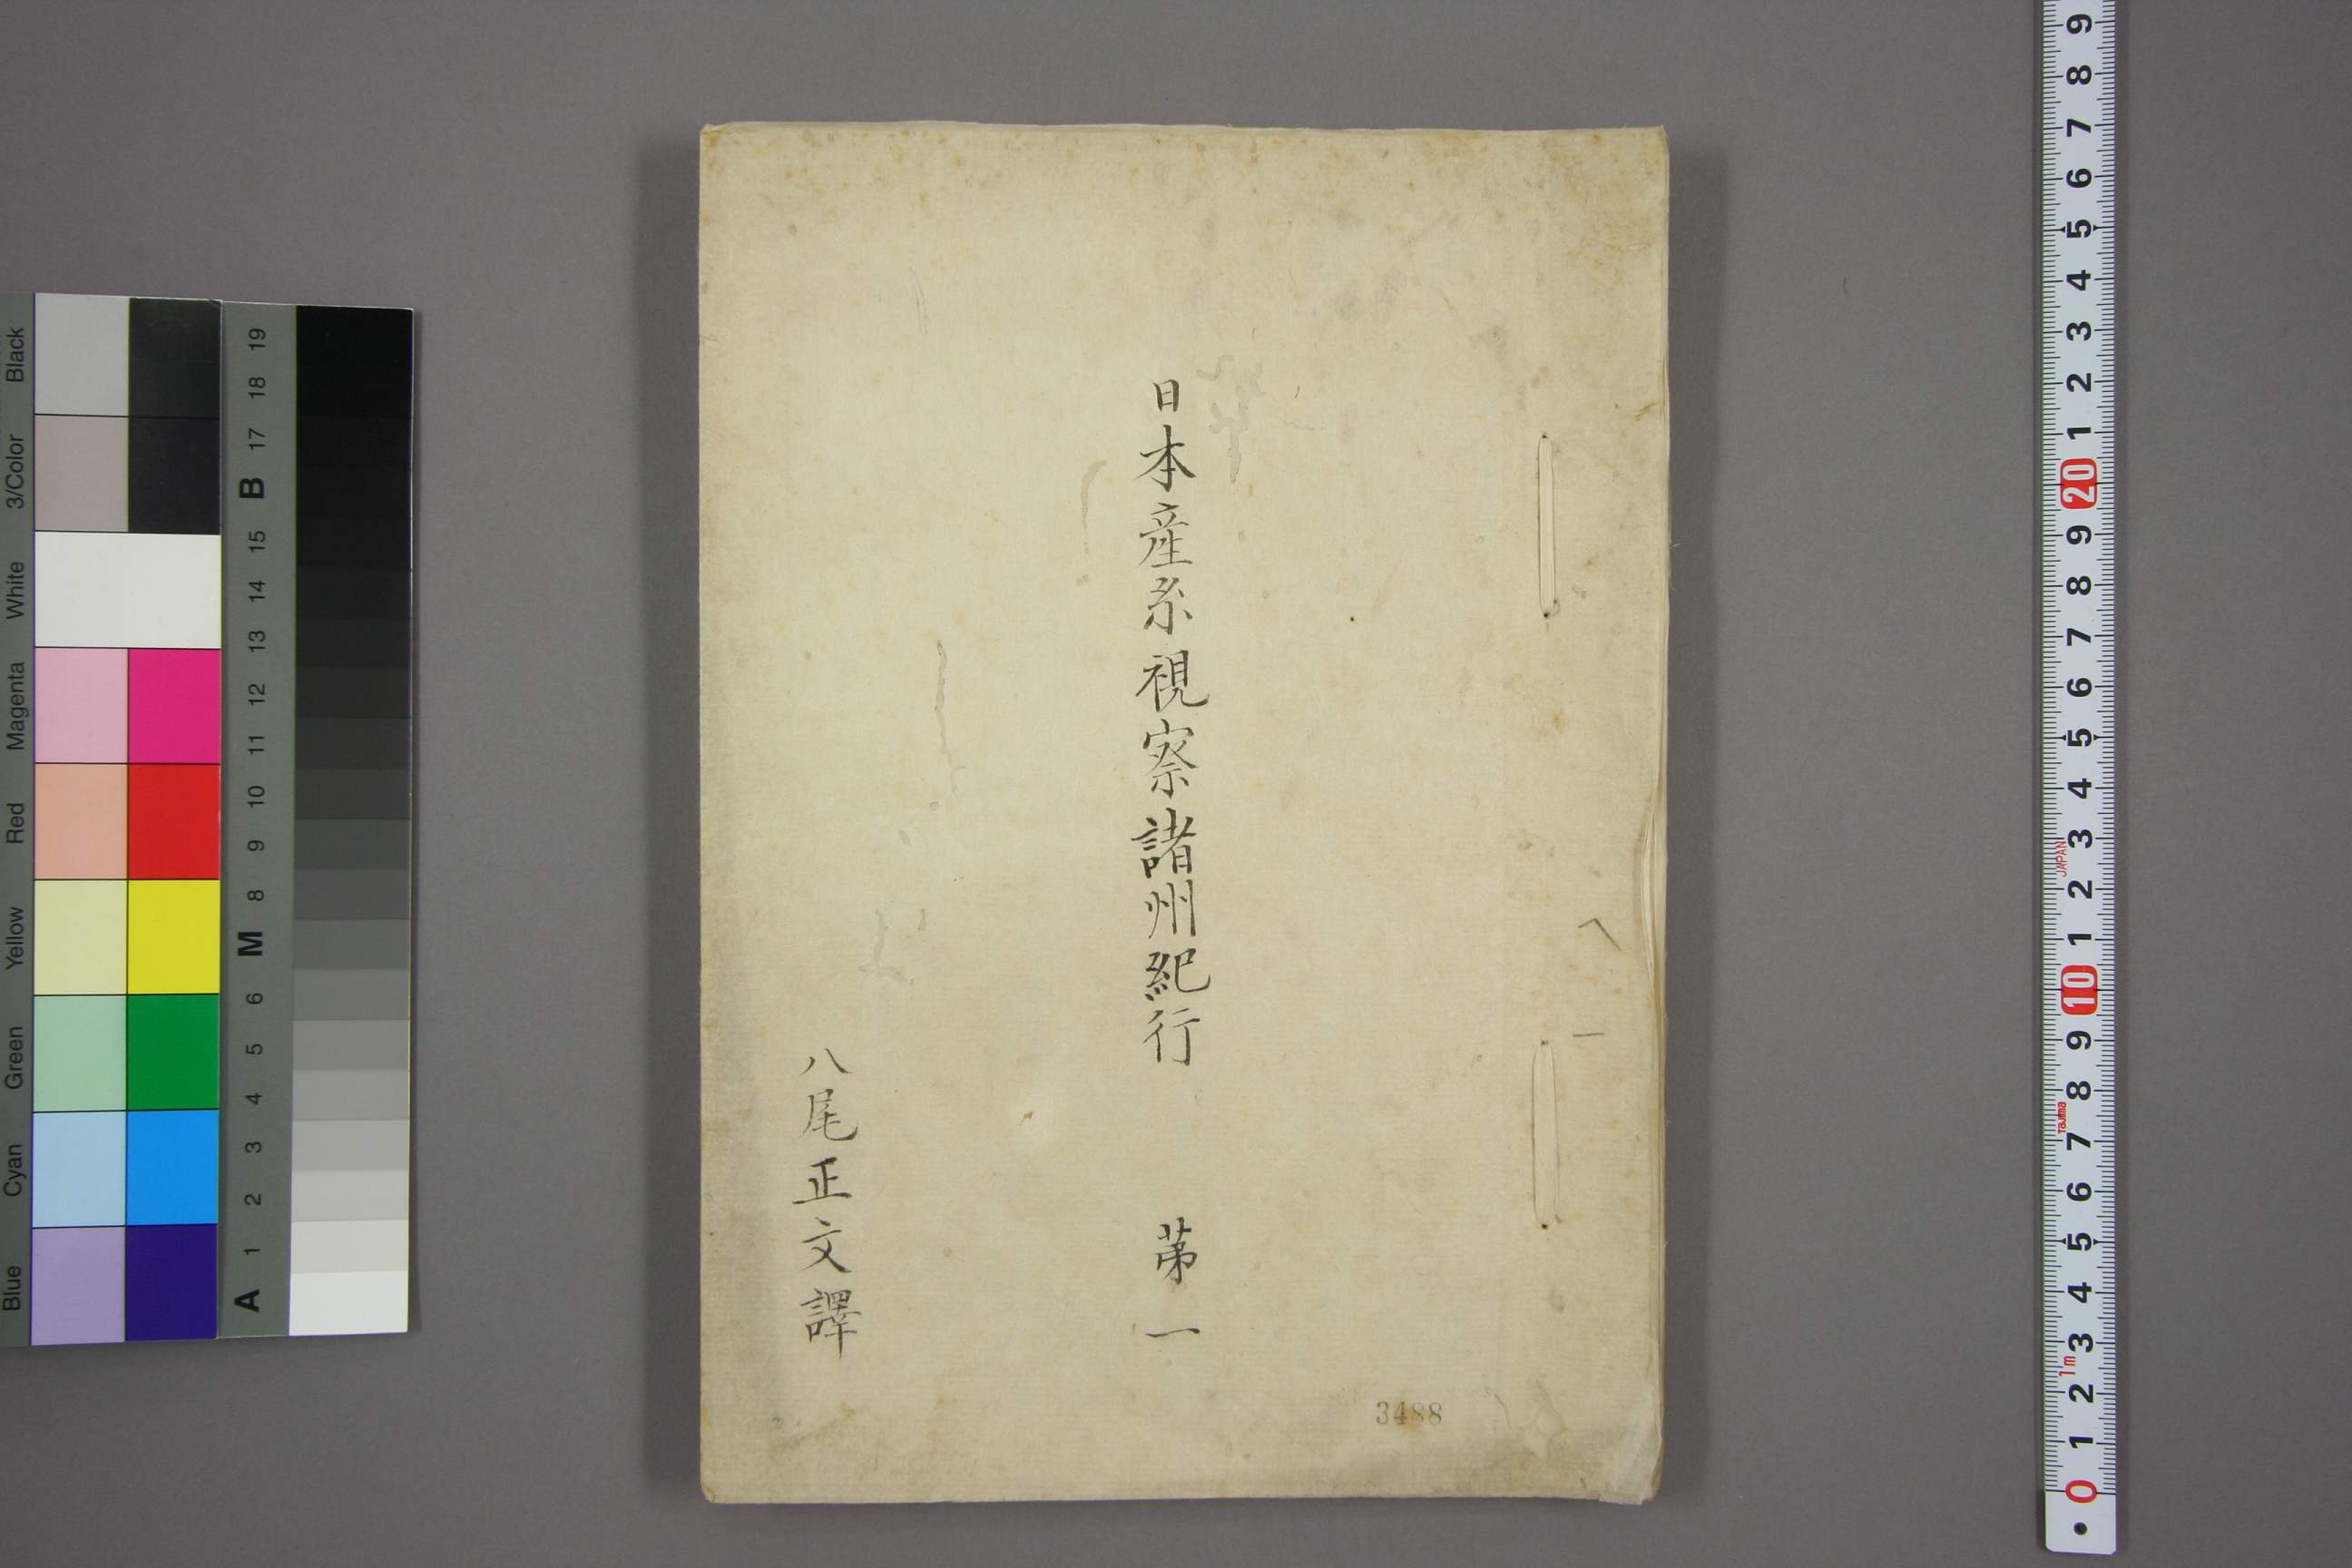 日本産糸視察諸州紀行 第一
八尾正文譯
へ 一
3488
Black
3/Color
White
Magenta
Red
Yellow
Green
Cyan
Blue
19
18
17
B
15
14
13
12
11
10
9
8
M
6
5
4
3
2
1
A
9
8
7
6
5
4
3
2
1
20
9
8
7
6
5
4
3
JAPAN
2
1
10
9
8
Tajima
7
6
5
4
3
1m
2
1
0